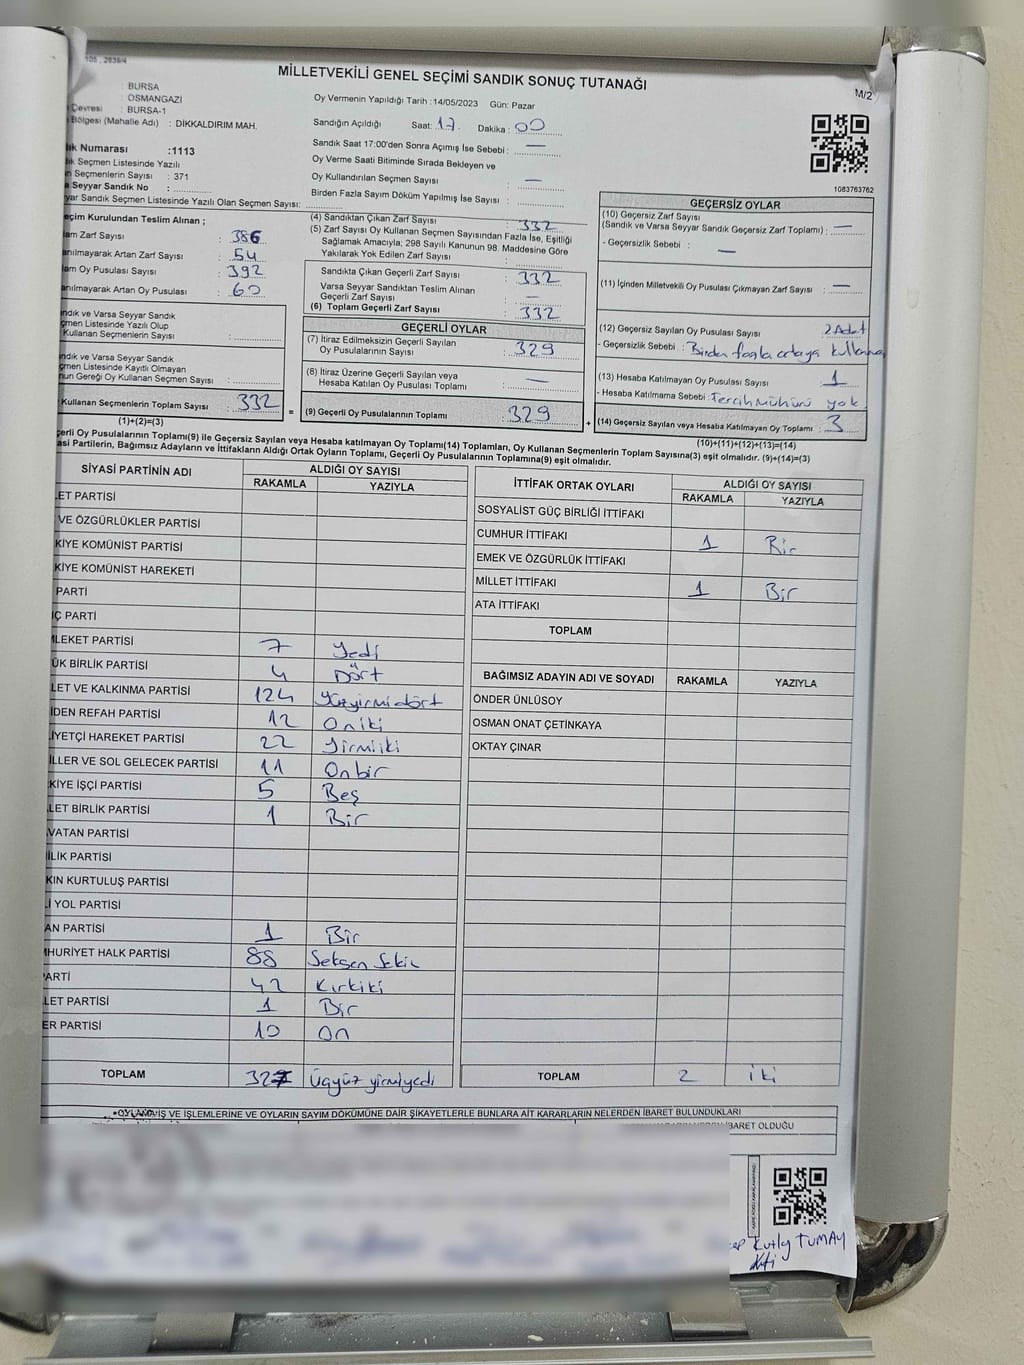 105 , 2838/4
MİLLETVEKİLİ GENEL SEÇİMİ SANDIK SONUÇ TUTANAĞI
M/2
: BURSA
: OSMANGAZİ
Çevresi : BURSA-1
Bölgesi (Mahalle Adı) : DİKKALDIRIM MAH.
Oy Vermenin Yapıldığı Tarih : 14/05/2023 Gün: Pazar
Sandığın Açıldığı Saat: 17 Dakika : 00
Sandık Saat 17:00'den Sonra Açmış İse Sebebi : —
Oy Verme Saati Bitiminde Sırada Bekleyen ve
Oy Kullandırılan Seçmen Sayısı : —
Birden Fazla Sayım Döküm Yapılmış İse Sayısı :
1083763762
ık Numarası :1113
ık Seçmen Listesinde Yazılı
n Seçmenlerin Sayısı : 371
a Seyyar Sandık No :
yar Sandık Seçmen Listesinde Yazılı Olan Seçmen Sayısı:
eçim Kurulundan Teslim Alınan ;
am Zarf Sayısı : 386
anılmayarak Artan Zarf Sayısı : 54
am Oy Pusulası Sayısı : 392
anılmayarak Artan Oy Pusulası : 60
ndık ve Varsa Seyyar Sandık
çmen Listesinde Yazılı Olup
Kullanan Seçmenlerin Sayısı :
ndık ve Varsa Seyyar Sandık
çmen Listesinde Kayıtlı Olmayan
nun Gereği Oy Kullanan Seçmen Sayısı :
Kullanan Seçmenlerin Toplam Sayısı : 332 =
(1)+(2)=(3)
(4) Sandıktan Çıkan Zarf Sayısı : 332
(5) Zarf Sayısı Oy Kullanan Seçmen Sayısından Fazla İse, Eşitliği
Sağlamak Amacıyla; 298 Sayılı Kanunun 98. Maddesine Göre
Yakılarak Yok Edilen Zarf Sayısı :
Sandıkta Çıkan Geçerli Zarf Sayısı : 332
Varsa Seyyar Sandıktan Teslim Alınan
Geçerli Zarf Sayısı : —
(6) Toplam Geçerli Zarf Sayısı : 332
GEÇERLİ OYLAR
(7) İtiraz Edilmeksizin Geçerli Sayılan
Oy Pusulalarının Sayısı : 329
(8) İtiraz Üzerine Geçerli Sayılan veya
Hesaba Katılan Oy Pusulası Toplamı : —
(9) Geçerli Oy Pusulalarının Toplamı : 329 +
GEÇERSİZ OYLAR
(10) Geçersiz Zarf Sayısı
(Sandık ve Varsa Seyyar Sandık Geçersiz Zarf Toplamı) : —
- Geçersizlik Sebebi : —
(11) İçinden Milletvekili Oy Pusulası Çıkmayan Zarf Sayısı : —
(12) Geçersiz Sayılan Oy Pusulası Sayısı : 2 Adet
- Geçersizlik Sebebi : Birden fazla
(13) Hesaba Katılmayan Oy Pusulası Sayısı : 1
- Hesaba Katılmama Sebebi : Tercih Mühürü yok
(14) Geçersiz Sayılan veya Hesaba Katılmayan Oy Toplamı : 3
(10)+(11)+(12)+(13)=(14)
çerli Oy Pusulalarının Toplamı(9) ile Geçersiz Sayılan veya Hesaba katılmayan Oy Toplamı(14) Toplamları, Oy Kullanan Seçmenlerin Toplam Sayısına(3) eşit olmalıdır. (9)+(14)=(3)
asi Partilerin, Bağımsız Adayların ve İttifakların Aldığı Ortak Oyların Toplamı, Geçerli Oy Pusulalarının Toplamına(9) eşit olmalıdır.
SİYASİ PARTİNİN ADI ALDIĞI OY SAYISI
RAKAMLA YAZIYLA
LET PARTİSİ
VE ÖZGÜRLÜKLER PARTİSİ
KİYE KOMÜNİST PARTİSİ
KİYE KOMÜNİST HAREKETİ
PARTİ
Ç PARTİ
LEKET PARTİSİ 7 Yedi
ÜK BİRLİK PARTİSİ 4 Dört
LET VE KALKINMA PARTİSİ 124 Yüzyirmidört
İDEN REFAH PARTİSİ 12 Oniki
LİYETÇİ HAREKET PARTİSİ 22 Yirmiiki
İLLER VE SOL GELECEK PARTİSİ 11 Onbir
KİYE İŞÇİ PARTİSİ 5 Beş
LET BİRLİK PARTİSİ 1 Bir
VATAN PARTİSİ
İLİK PARTİSİ
KIN KURTULUŞ PARTİSİ
İ YOL PARTİSİ
AN PARTİSİ 1 Bir
HURİYET HALK PARTİSİ 88 Seksen Sekiz
ARTİ 42 Kırkiki
LET PARTİSİ 1 Bir
ER PARTİSİ 10 On
TOPLAM 327 Üçyüz yirmiyedi
İTTİFAK ORTAK OYLARI ALDIĞI OY SAYISI
RAKAMLA YAZIYLA
SOSYALİST GÜÇ BİRLİĞİ İTTİFAKI
CUMHUR İTTİFAKI 1 Bir
EMEK VE ÖZGÜRLÜK İTTİFAKI
MİLLET İTTİFAKI 1 Bir
ATA İTTİFAKI
TOPLAM
BAĞIMSIZ ADAYIN ADI VE SOYADI RAKAMLA YAZIYLA
ÖNDER ÜNLÜSOY
OSMAN ONAT ÇETİNKAYA
OKTAY ÇINAR
TOPLAM 2 iki
İŞ VE İŞLEMLERİNE VE OYLARIN SAYIM DÖKÜMÜNE DAİR ŞİKAYETLERLE BUNLARA AİT KARARLARIN NELERDEN İBARET BULUNDUKLARI
İBARET OLDUĞU
TUMAY